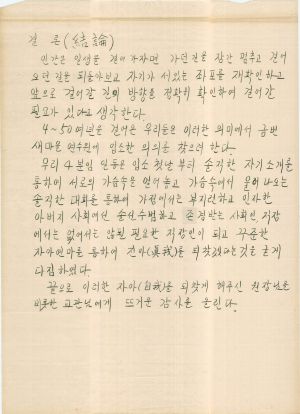 결 론 (結論)
인간은 인생을 걸어가자면 가던길을 잠간 멈추고 걸어
오던 길을 되돌아보고 자기가 서있는 좌표를 재확인하고
앞으로 걸어갈 길의 방향을 정확히 확인하여 걸어갈
필요가 있다고 생각한다.
4~50여년을 걸어온 우리들은 이러한 의미에서 금번
새마을 연수원에 입소한 의의를 찾으려 한다.
우리 4분임 일동은 입소 첫날 부터 솔직한 자기소개를
통하여 서로의 가슴속을 열어놓고 가슴속에서 울어나오는
솔직한 대화를 통하여 가정에서는 부지런하고 인자한
아버지 사회에선 솔선수범하고 존경받는 사회인 직장
에서는 없어서는 않될 필요한 직장인이 되고 꾸준한
자아연마를 통하여 진아(眞我)를 되찾겠다는것을 굳게
다짐하였다.
끝으로 이러한 자아(自我)를 되찾게 해주신 원장님을
비롯한 교관님에게 뜨거운 감사를 올린다.